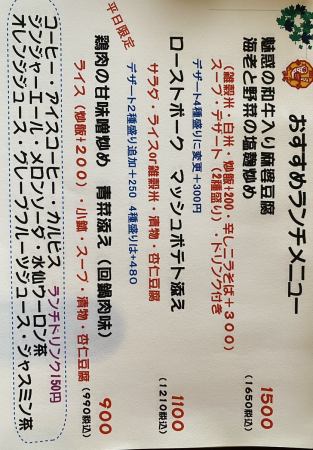 おすすめランチメニュー
魅惑の和牛入り麻婆豆腐
海老と野菜の塩麹炒め
1500
(1650税込)
(雑穀米・白米・炒飯+200・辛しニラそば+300)
スープ・デザート(2種盛り)・ドリンク付き
デザート4種盛りに変更+300円
ローストポーク マッシュポテト添え
1100
(1210税込)
サラダ・ライスor雑穀米・漬物・杏仁豆腐
デザート2種盛り追加+250 4種盛りは+480
平日限定
鶏肉の甘味噌炒め 青菜添え(回鍋肉味)
900
(990税込)
ライス(炒飯+200)・小鉢・スープ・漬物・杏仁豆腐
ランチドリンク150円
コーヒー・アイスコーヒー・カルピス
ジンジャーエール・メロンソーダ・水仙ウーロン茶
オレンジジュース・グレープフルーツジュース・ジャスミン茶